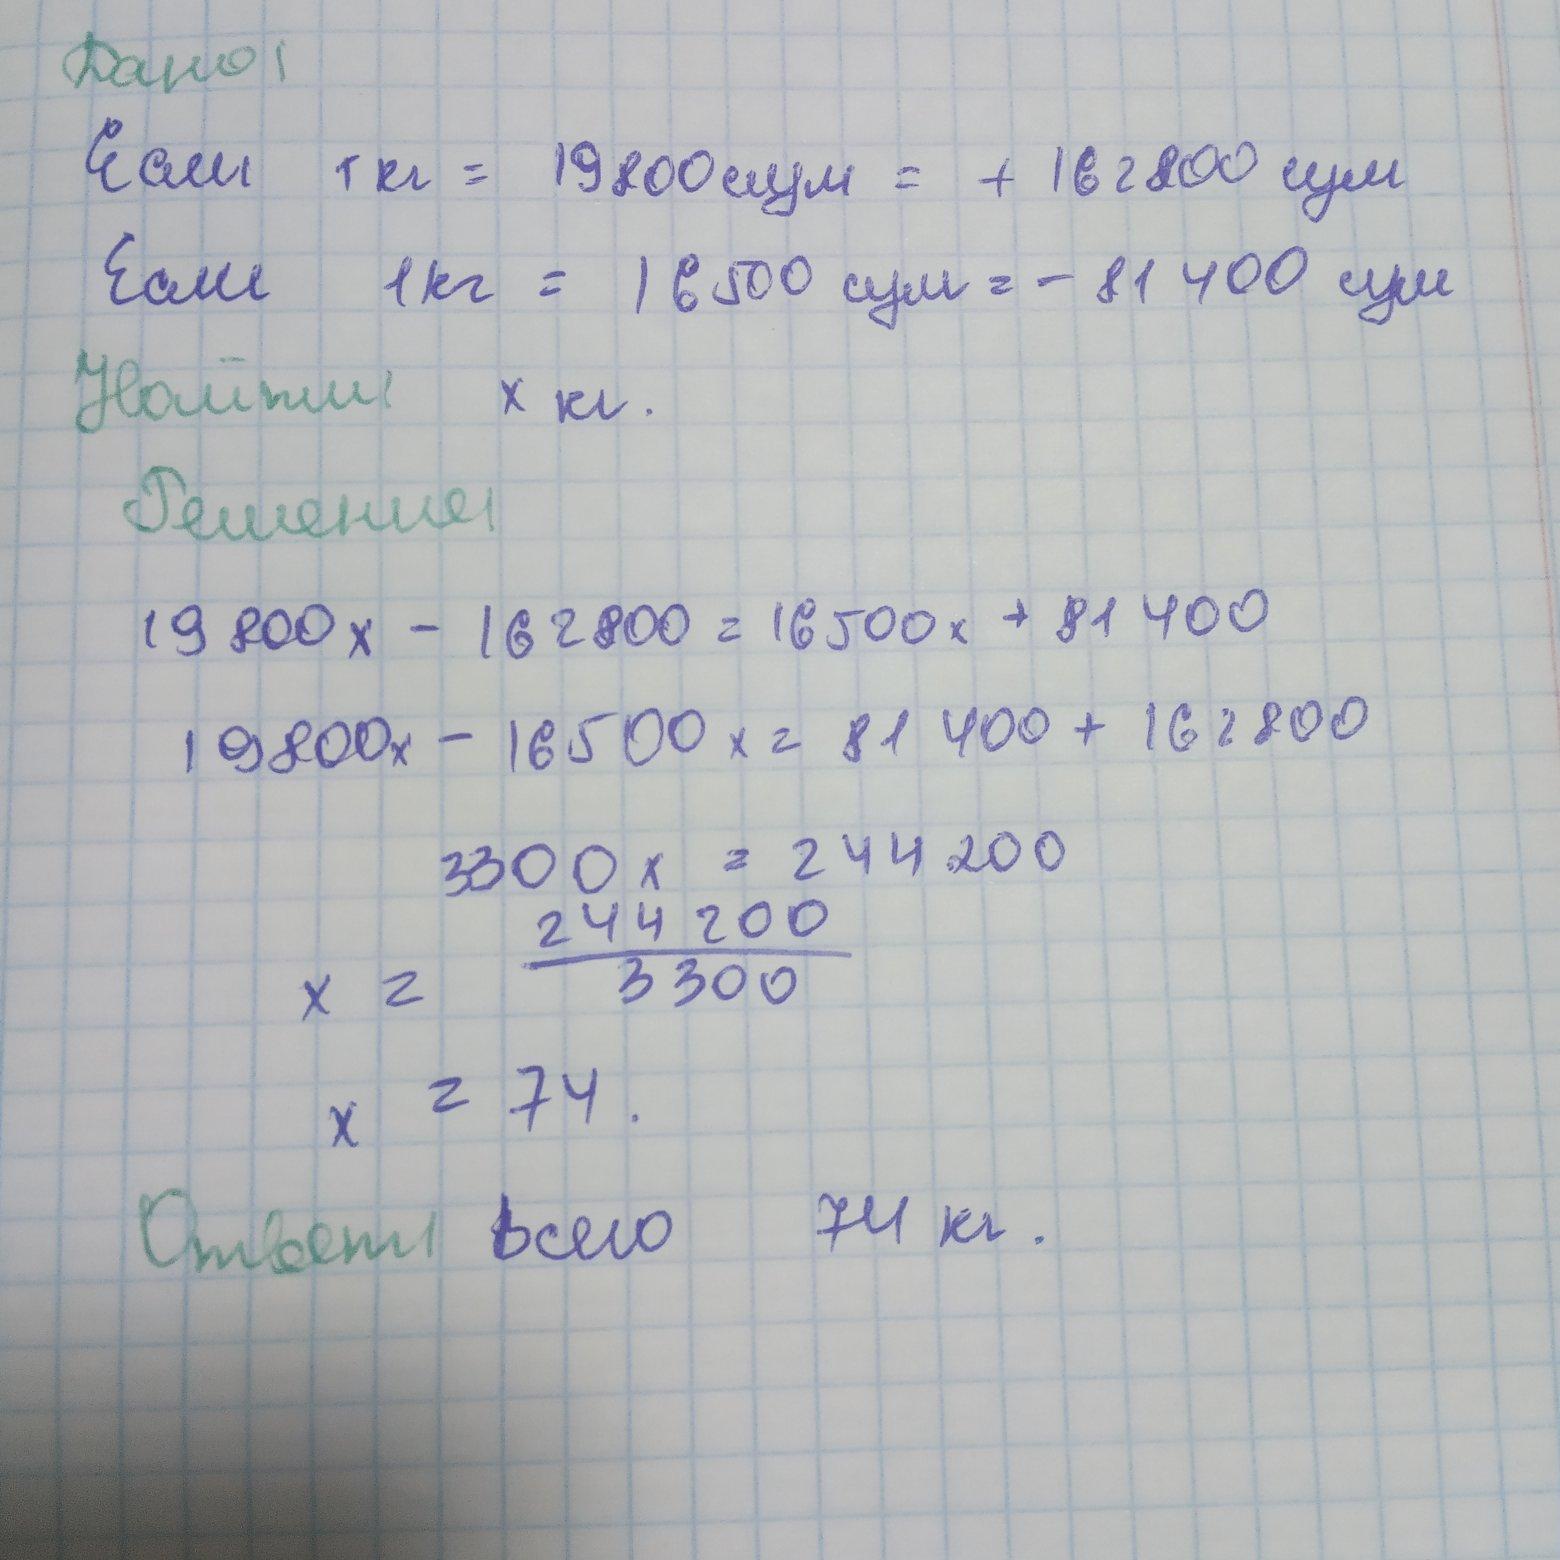 Дано:
Если 1 кг = 19800 сум = + 162800 сум
Если 1 кг = 16500 сум = - 81 400 сум
Найти: x кг.
Решение:
19 800x - 162800 = 16500x + 81 400
19800x - 16500x = 81 400 + 162800
3300x = 244 200
x = 244 200 / 3300
x = 74.
Ответ: всего 74 кг.